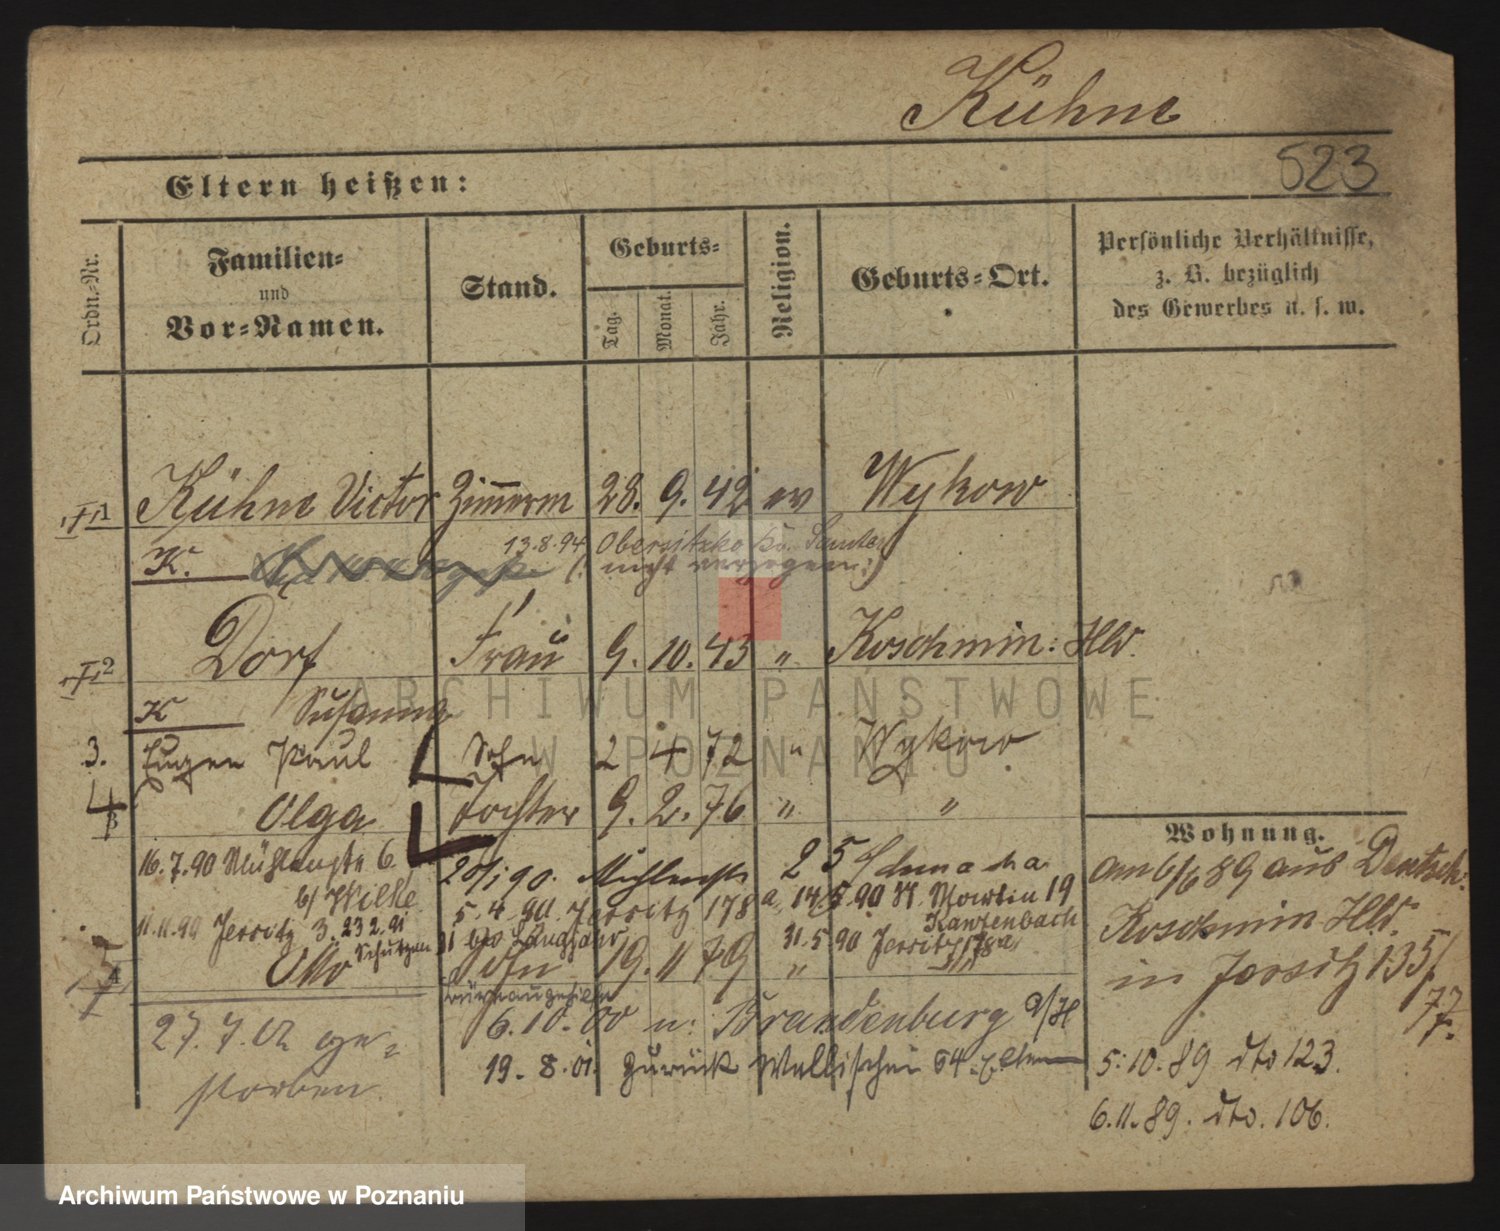 Kühne
523
Eltern heißen:
Ordn.-Nr.
Familien- und Vor-Namen.
Stand.
Geburts-
Tag.
Monat.
Jahr.
Religion.
Geburts-Ort.
Persönliche Verhältnisse,
z. B. bezüglich
des Gewerbes u. s. w.
1 Kühne Victor Zimmerm 28. 9. 42 ev Wykow
K. 13.8.94 Obersitzko
(: nicht verzogen :)
2 Dorf Frau 9. 10. 43 " Koschmin: Hld.
K Susanna
3. Eugen Paul Sohn 2 4 72 " Wykow
4 Olga Tochter 9. 2. 76 " "
16.7.90 Mühlenstr 6
b/ Wilke
20/1 90. Mühlenstr
5.4.90. Jersitz 178 a, 14/5.90 St. Martin 19
Kantenbach
11.11.90 Jersitz 3. 23 2. 91
31.5 90 Jersitz 178a
Otto Sohn 19. 11 79 "
6.10.00 n: Brandenburg a/H
27.7.02 ge-
storben
19. 8. 01. zurück Wallischei 64. Eltern
Wohnung.
am 6/6 89 aus Deutsch.
Koschmin Hld.
in Jersitz 135/
77.
5.10.89 dto 123.
6.11.89. dto. 106.
ARCHIWUM PAŃSTWOWE
W POZNANIU
Archiwum Państwowe w Poznaniu